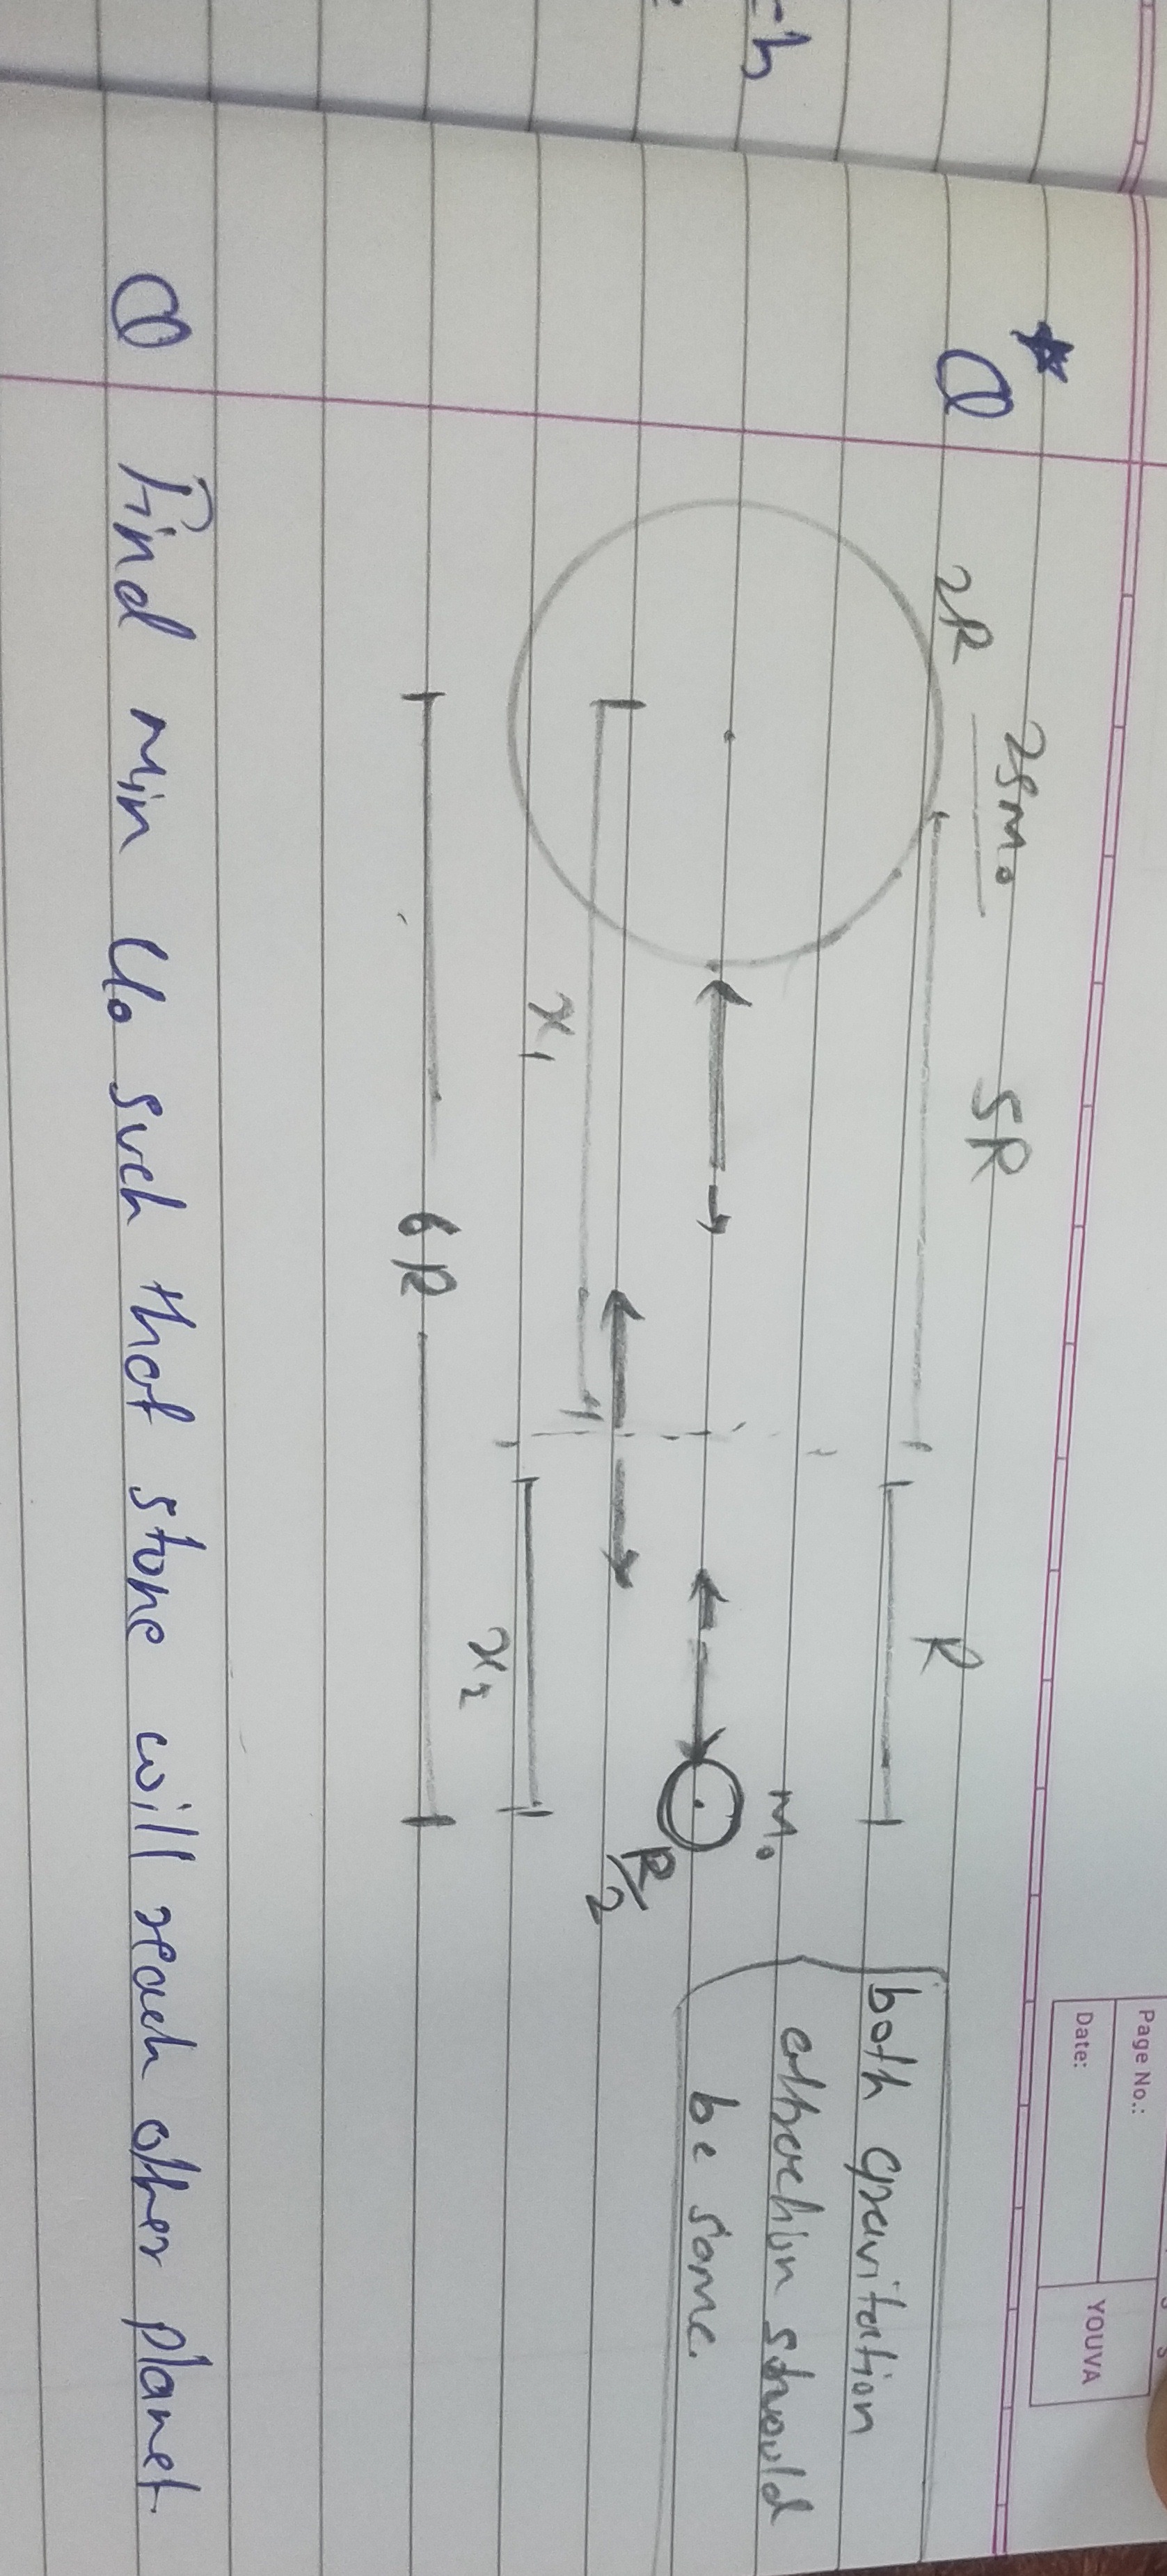 Page No.:
Date:
YOUVA
Q
25m₀
2R
5R
R
m₀
R/2
both gravitation
attraction should
be same.
x₁
x₂
6R
Q Find min u₀ such that stone will reach other planet.